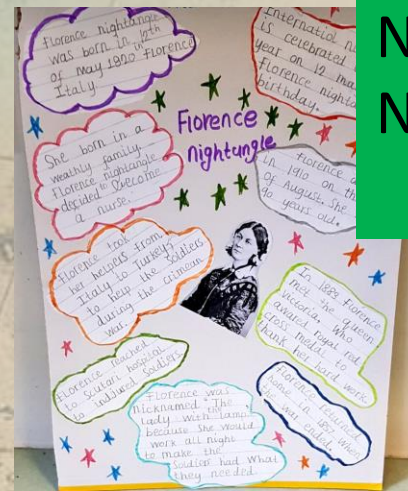 Florence nightangle
was born in 10th
of may 1820 in Florence
Italy
Internatiol n
is celebrated
year on 12 ma
Florence nighta
birthday.
N
N
Florence
Nightungle
She born in a
wealthy family.
Florence nightangle
decided to become
a nurse.
florence
in 1910 on th
of August. She
90 years old.
Florence took
her helpers from
Italy to Turkey
to help the soldiers
during the crimean
war.
In 1883 florence
met the queen
victoria, who
awared royal red
cross medal to
thank her hard work
Florence reached
to scutari hospital
to indjured soldiers.
Florence was
nicknamed "The
Lady with the lamp"
because she would
work all night
to make the
Soldier had what
they needed.
Florence returned
home in 1857 when
the war ended.